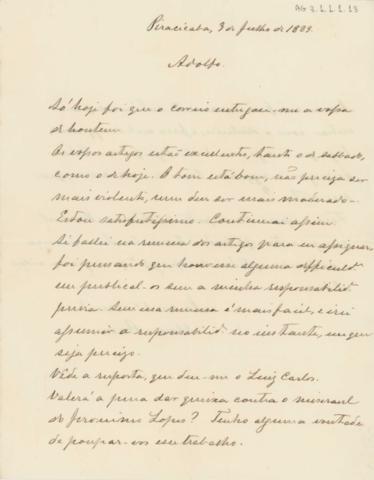 AG 3.1.1.1.13
Piracicaba, 3 de Julho de 1893.
Adolpho.
Só hoje foi que o correio entregou-me a vossa
de hontem.
Os vossos artigos estão excellentes, tanto o de sabbado,
como o de hoje. O tom está bom, não precisa ser
mais violento, nem deve ser mais moderado.-
Estou satisfeitissimo. Continuai assim.
Si fallei na remessa dos artigos para eu assignar,
foi pensando que houvesse alguma difficuld.
em publical-os sem a minha responsabilid.
previa. Sem essa remessa é mais facil, e irei
assumir a responsabilid. no instante, em que
seja preciso.
Vêde a resposta, que deu-me o Luiz Carlos.
Valerá a pena dar queixa contra o miseravel
do Jeronimo Lopes? Tenho alguma vontade
de poupar-vos esse trabalho.